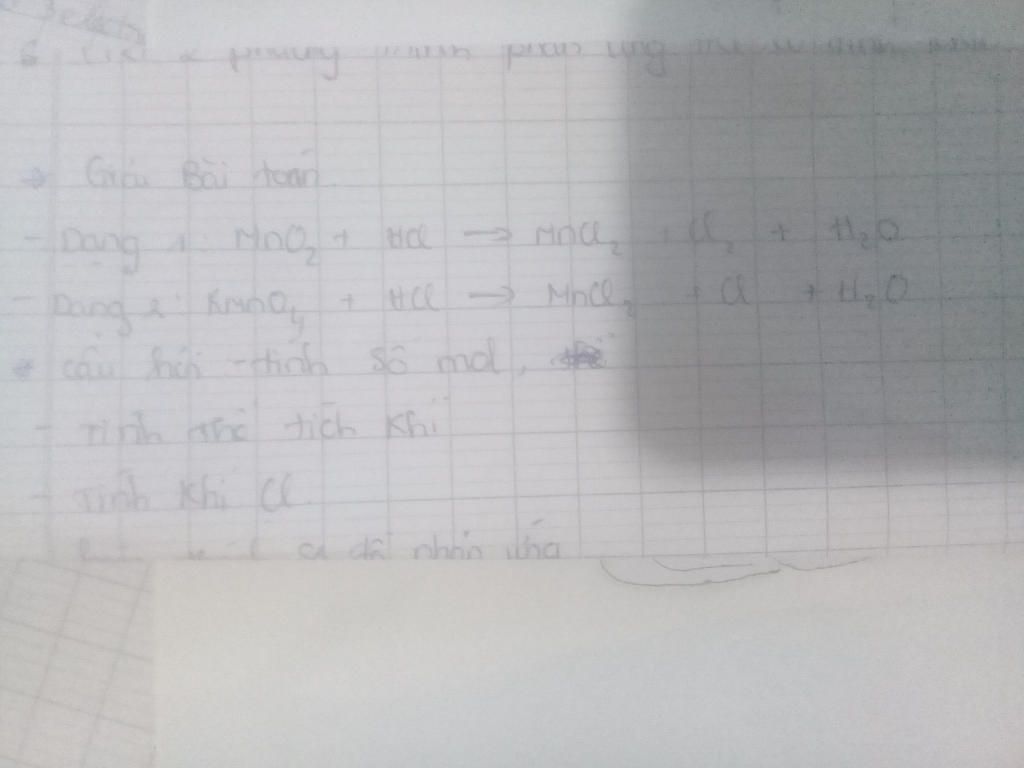 phương trình phản ứng
→ Giải Bài toán
- Dạng 1: MnO₂ + HCl → MnCl₂ + Cl₂ + H₂O
- Dạng 2: KMnO₄ + HCl → MnCl₂ + Cl + H₂O
* câu hỏi - tính số mol,
- Tính thể tích khí
- Tính khí Cl
đã phản ứng